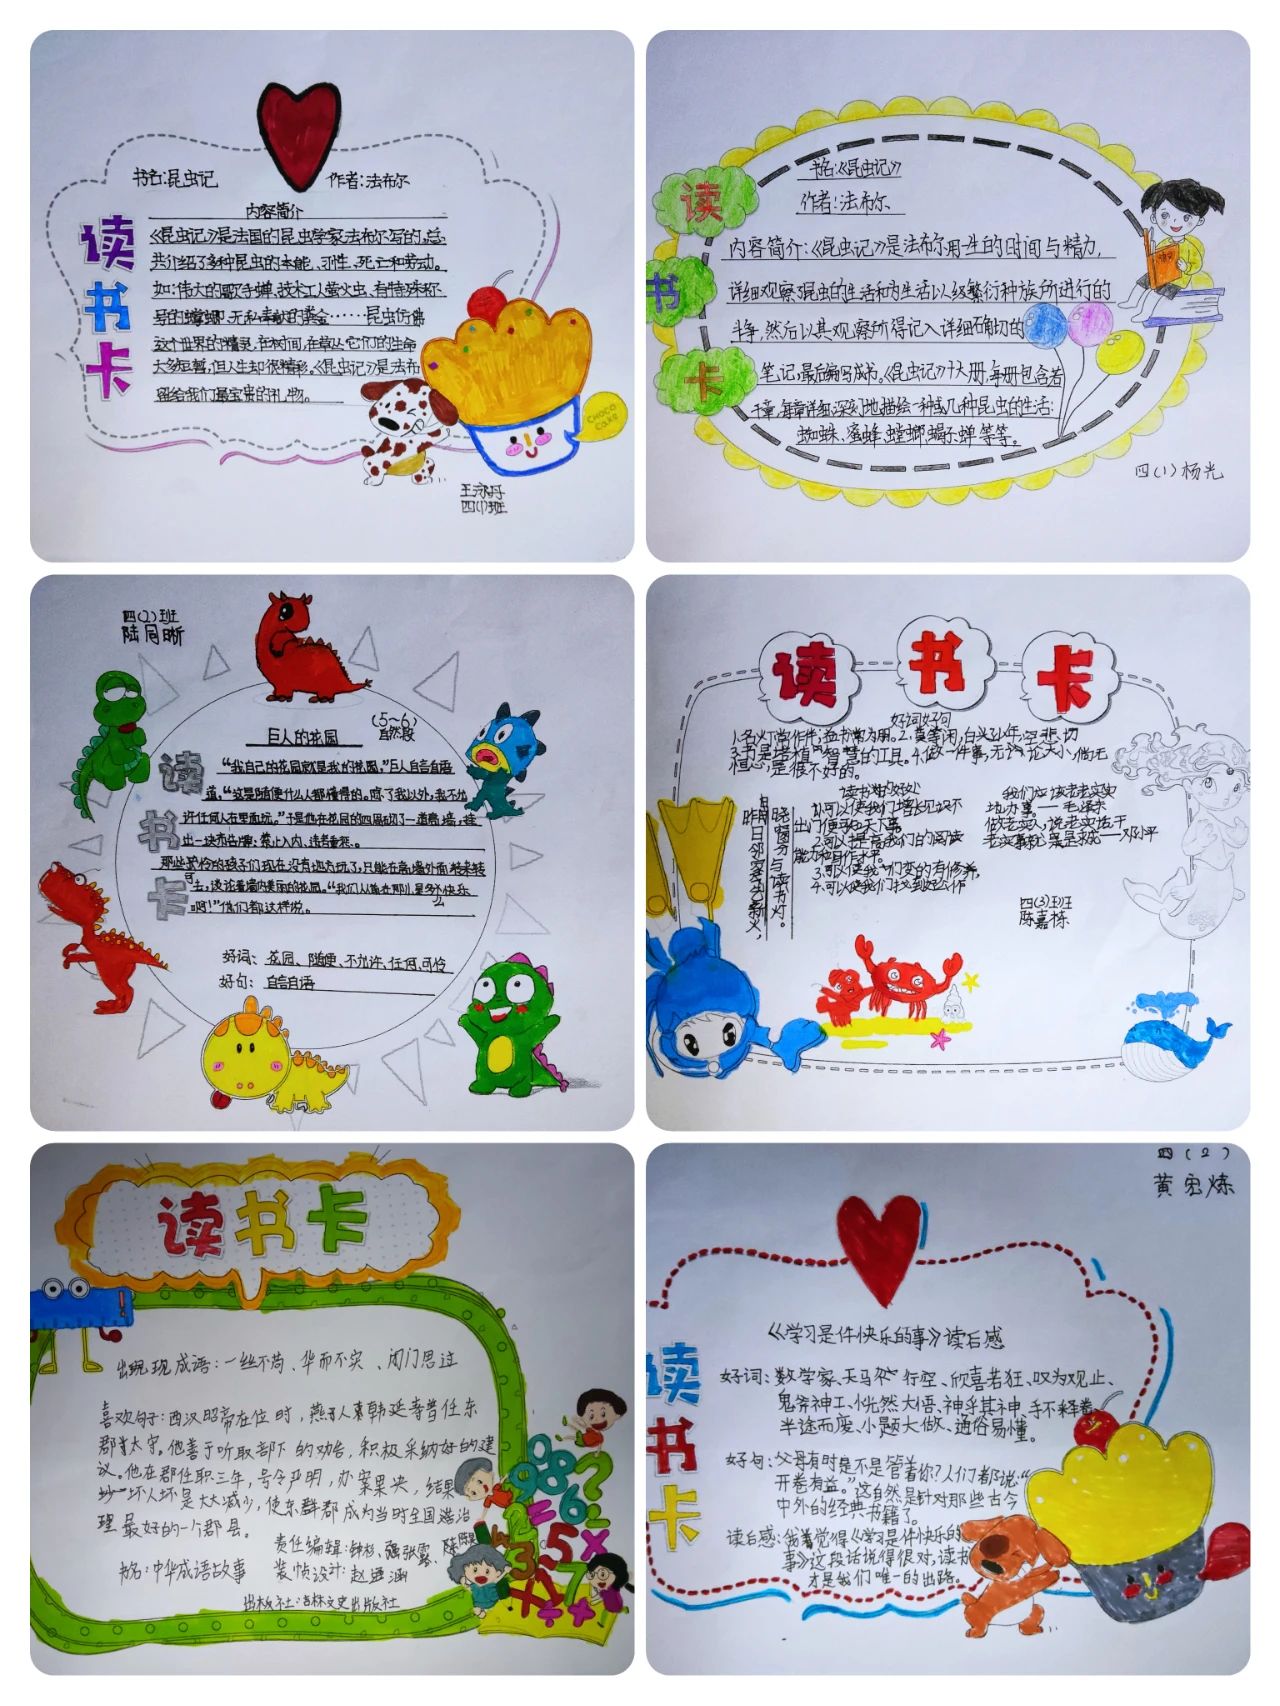 读书卡
书名:昆虫记 作者:法布尔
内容简介
《昆虫记》是法国的昆虫学家法布尔写的,总
共介绍了多种昆虫的本能、习性、死亡和劳动。
如:伟大的歌手蝉、技术工人萤火虫、有特殊称
号的螳螂、无私奉献的粪金……昆虫仿佛
这个世界的精灵,在树间,在草丛它们的生命
大多短暂,但人生却很精彩。《昆虫记》是法布
留给我们最宝贵的礼物。
CHOCO
cake
四(1)班
读书卡
书名:《昆虫记》
作者:法布尔
内容简介:《昆虫记》是法布尔用一生的时间与精力,
详细观察昆虫的生活和为生活以及繁衍种族所进行的
斗争,然后以其观察所得记入详细确切的
笔记,最后编写成书。《昆虫记》十大册,每册包含若
干章,每章详细、深刻地描绘一种或几种昆虫的生活:
蜘蛛、蜜蜂、螳螂、蝎子、蝉等等。
四(1)杨光
四(2)班
陆同晰
读书卡
巨人的花园
(5~6)
自然段
“我自己的花园就是我的花园。”巨人自言自语
道,“这是随便什么人都懂得的。除了我以外,我不允
许任何人在里面玩。”于是他在花园的四周砌了一道高墙,挂
出一块布告牌:禁止入内,违者重惩。
那些可怜的孩子们现在没有地方玩了,只能在高墙外面转来转
去,谈论着墙内美丽的花园。“我们从前在那儿是多么快乐
啊!”他们都这样说。
好词:花园、随便、不允许、任何、可怜
好句:自言自语
读书卡
好词好句
2.莫等闲,白了少年头,空悲切
3.书是培植智慧的工具。4.做一件事,无论大小,倘无
恒心,是很不好的。
读书的好处
1.可以使我们增长见识不
出门便可知天下事
2.可以提高我们的阅读
能力和写作水平。
3.可以使我们变的有修养,
4.可以使我们找到好工作
昨日邻家乞新火,
晓窗分与读书灯。
我们应该老老实实
地办事——毛泽东
做老实人,说老实话,干
老实事,就是实事求是——邓小平
四(3)班
陈嘉栋
读书卡
出现成语:一丝不苟、华而不实、闭门思过
喜欢句子:西汉昭帝在位时,燕人韩延寿曾任东
郡太守。他善于听取部下的劝告,积极采纳好的建
议。他在郡任职三年,号令严明,办案果决,结果
坏人坏事大大减少,使东郡成为当时全国治
理最好的一个郡县。
书名:中华成语故事
责任编辑:钟杉、
出版社:吉林文史出版社
四(2)
黄宏炼
读书卡
《学习是件快乐的事》读后感
好词:数学家、天马行空、欣喜若狂、叹为观止、
鬼斧神工、恍然大悟、神乎其神、手不释卷、
半途而废、小题大做、通俗易懂。
好句:父母有时是不是管着你?人们都说:“
开卷有益。”这自然是针对那些古今
中外的经典书籍了。
读后感:我觉得《学习是件快乐的
事》这段话说得很对,读书
才是我们唯一的出路。